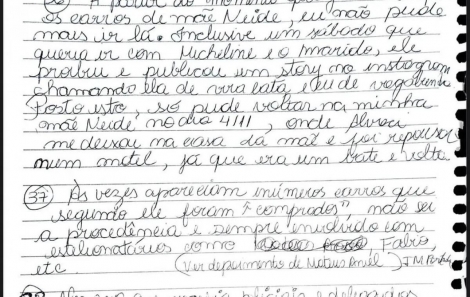 36) A partir do momento que
os carros de mãe Neide, eu não pude
mais ir lá. Inclusive um sábado que
queria ir com Micheline e o marido, ele
proibiu e publicou um story no instagram
chamando ela de vira lata e eu de vagabunda
Posto isto, só pude voltar na minha
mãe Neide no dia 4/11, onde
me deixou na casa da mãe e foi repousar
num motel, já que era um bate e volta
37) Às vezes apareciam inúmeros carros que
segundo ele foram "comprados", não sei
a procedência e sempre envolvido com
estelionatários como Fabio,
etc. (Ver depoimento de Mateus